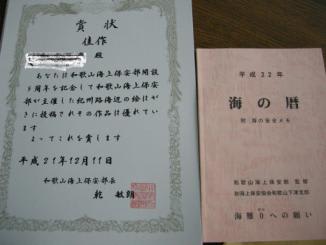 賞状
佳作
殿
あなたは和歌山海上保安部開設
周年を記念して和歌山海上保安
部が主催した紀州路海辺の絵はが
きに投稿されその作品は優れてい
ます
よってこれを賞します
平成21年12月11日
和歌山海上保安部長
乾 敏朗
平成22年
海の暦
附 海の安全メモ
和歌山海上保安部 監修
海上保安協会和歌山下津支部
海難0への願い